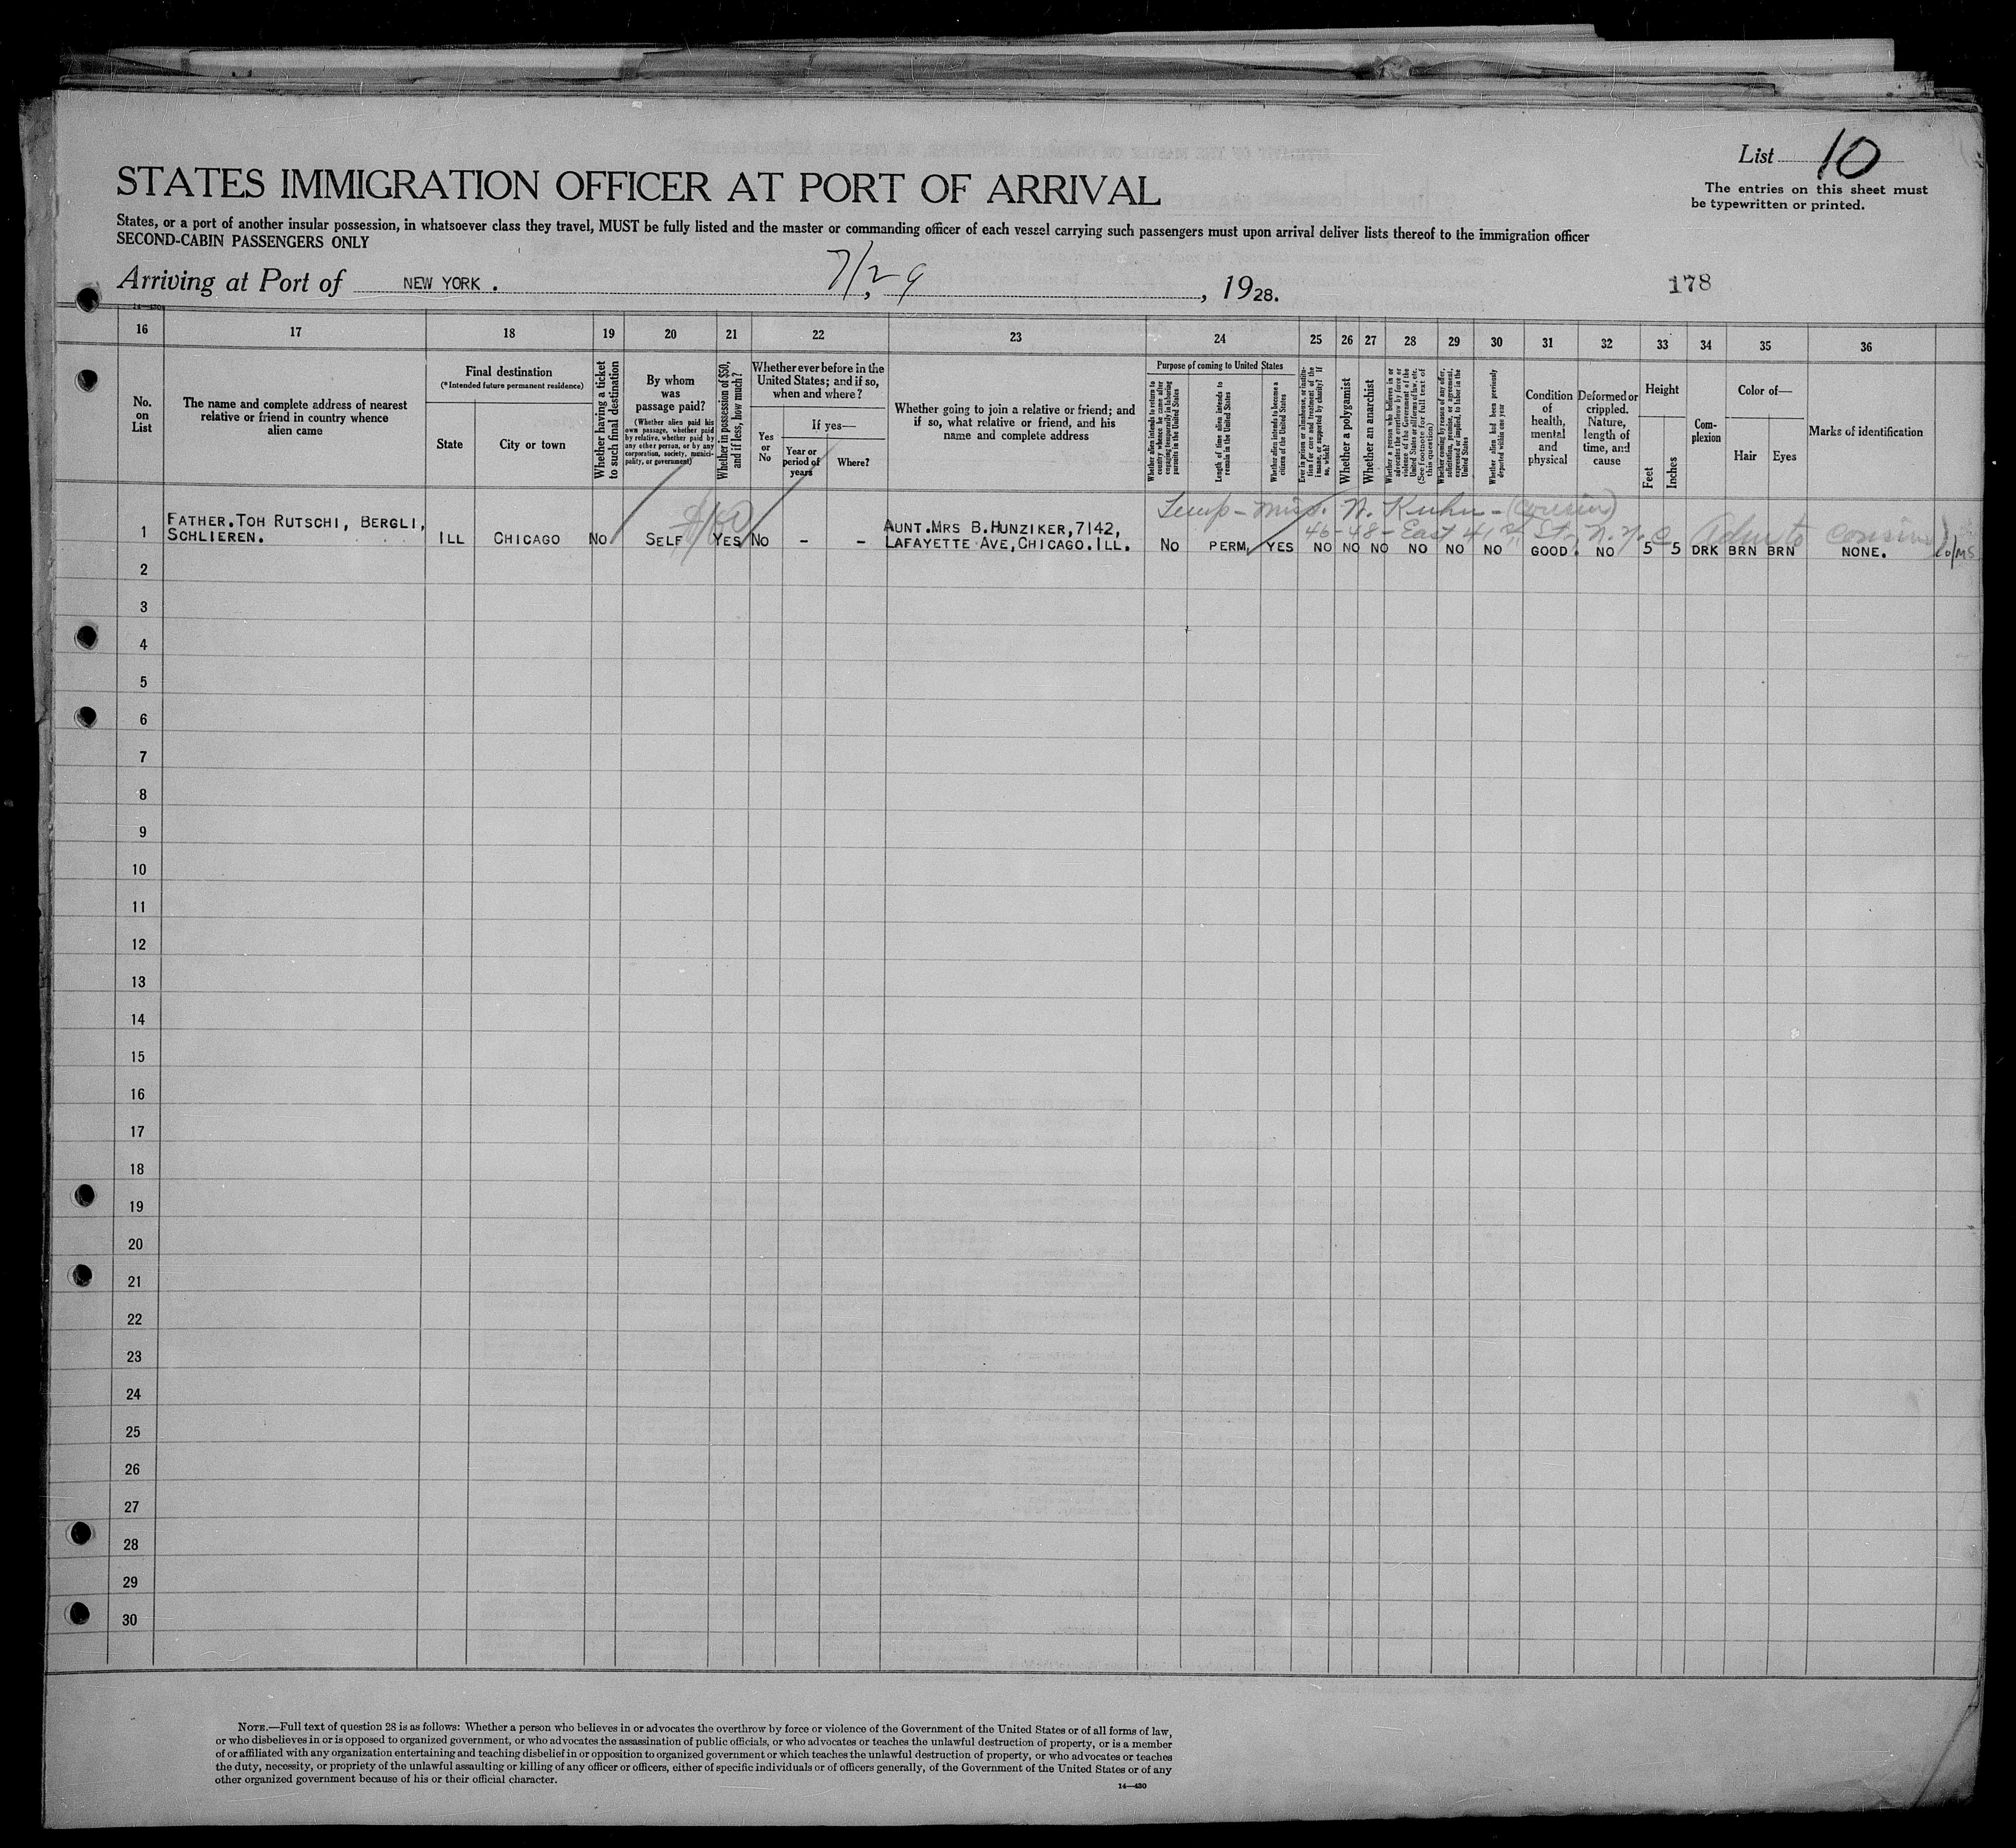 List 10
The entries on this sheet must
be typewritten or printed.
STATES IMMIGRATION OFFICER AT PORT OF ARRIVAL
States, or a port of another insular possession, in whatsoever class they travel, MUST be fully listed and the master or commanding officer of each vessel carrying such passengers must upon arrival deliver lists thereof to the immigration officer
SECOND-CABIN PASSENGERS ONLY
Arriving at Port of NEW YORK. 7/29, 1928.
178
16 17 18 19 20 21 22 23 24 25 26 27 28 29 30 31 32 33 34 35 36
No.
on
List
The name and complete address of nearest
relative or friend in country whence
alien came
Final destination
(*Intended future permanent residence)
State
City or town
Whether having a ticket
to such final destination
By whom
was
passage paid?
(Whether alien paid his
own passage, whether paid
by relative, whether paid by
any other person, or by any
corporation, society, munici-
pality, or government)
Whether in possession of $50,
and if less, how much?
Whether ever before in the
United States; and if so,
when and where?
Yes
or
No
If yes—
Year or
period of
years
Where?
Whether going to join a relative or friend; and
if so, what relative or friend, and his
name and complete address
Purpose of coming to United States
Whether alien intends to return to
country whence he came after
engaging temporarily in laboring
pursuits in the United States
Length of time alien intends to
remain in the United States
Whether alien intends to become a
citizen of the United States
Ever in prison or almshouse, or institu-
tion for care and treatment of the
insane, or supported by charity? If
so, which?
Whether a polygamist
Whether an anarchist
Whether a person who believes in or
advocates the overthrow by force or
violence of the Government of the
United States or all forms of law, etc.
(See footnote for full text of
this question)
Whether coming by reason of any offer,
solicitation, promise, or agreement,
expressed or implied, to labor in the
United States
Whether alien had been previously
deported within one year
Condition
of
health,
mental
and
physical
Deformed or
crippled.
Nature,
length of
time, and
cause
Height
Feet
Inches
Com-
plexion
Color of—
Hair
Eyes
Marks of identification
Temp - Miss. N. Kuhn - (cousin)
46-48 - East 41 St., N.Y.C.
Adm to cousin
$150
1 FATHER.TOH RUTSCHI, BERGLI,
SCHLIEREN. ILL CHICAGO NO SELF YES NO - - AUNT.MRS B.HUNZIKER,7142,
LAFAYETTE AVE,CHICAGO.ILL. NO PERM YES NO NO NO NO NO NO GOOD. NO 5 5 DRK BRN BRN NONE.
2
3
4
5
6
7
8
9
10
11
12
13
14
15
16
17
18
19
20
21
22
23
24
25
26
27
28
29
30
NOTE.—Full text of question 28 is as follows: Whether a person who believes in or advocates the overthrow by force or violence of the Government of the United States or of all forms of law,
or who disbelieves in or is opposed to organized government, or who advocates the assassination of public officials, or who advocates or teaches the unlawful destruction of property, or is a member
of or affiliated with any organization entertaining and teaching disbelief in or opposition to organized government or which teaches the unlawful destruction of property, or who advocates or teaches
the duty, necessity, or propriety of the unlawful assaulting or killing of any officer or officers, either of specific individuals or of officers generally, of the Government of the United States or of any
other organized government because of his or their official character.
14—430